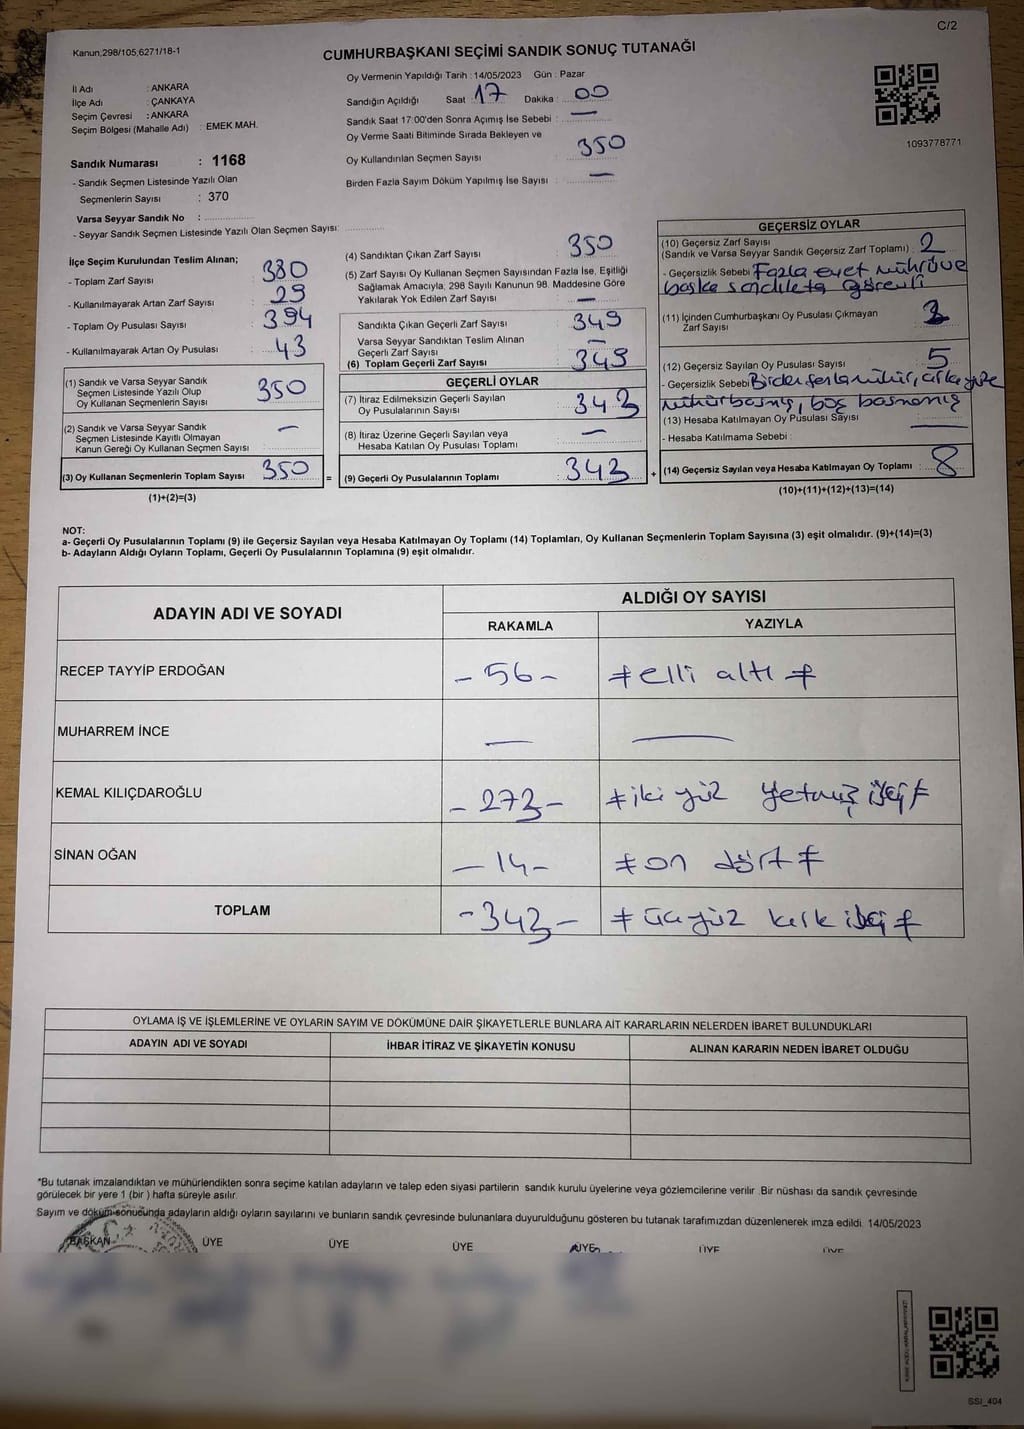 C/2
Kanun;298/105;6271/18-1
CUMHURBAŞKANI SEÇİMİ SANDIK SONUÇ TUTANAĞI
İl Adı : ANKARA
İlçe Adı : ÇANKAYA
Seçim Çevresi : ANKARA
Seçim Bölgesi (Mahalle Adı) : EMEK MAH.
Sandık Numarası : 1168
- Sandık Seçmen Listesinde Yazılı Olan
Seçmenlerin Sayısı : 370
Varsa Seyyar Sandık No :
- Seyyar Sandık Seçmen Listesinde Yazılı Olan Seçmen Sayısı:
Oy Vermenin Yapıldığı Tarih : 14/05/2023 Gün : Pazar
Sandığın Açıldığı Saat : 17 Dakika : 00
Sandık Saat 17:00'den Sonra Açımış İse Sebebi : —
Oy Verme Saati Bitiminde Sırada Bekleyen ve
Oy Kullandırılan Seçmen Sayısı : 350
Birden Fazla Sayım Döküm Yapılmış İse Sayısı : —
1093778771
İlçe Seçim Kurulundan Teslim Alınan;
- Toplam Zarf Sayısı : 380
- Kullanılmayarak Artan Zarf Sayısı : 29
- Toplam Oy Pusulası Sayısı : 394
- Kullanılmayarak Artan Oy Pusulası : 43
(1) Sandık ve Varsa Seyyar Sandık
Seçmen Listesinde Yazılı Olup
Oy Kullanan Seçmenlerin Sayısı : 350
(2) Sandık ve Varsa Seyyar Sandık
Seçmen Listesinde Kayıtlı Olmayan
Kanun Gereği Oy Kullanan Seçmen Sayısı : —
(3) Oy Kullanan Seçmenlerin Toplam Sayısı : 350
(1)+(2)=(3)
(4) Sandıktan Çıkan Zarf Sayısı : 350
(5) Zarf Sayısı Oy Kullanan Seçmen Sayısından Fazla İse, Eşitliği
Sağlamak Amacıyla, 298 Sayılı Kanunun 98. Maddesine Göre
Yakılarak Yok Edilen Zarf Sayısı : —
Sandıkta Çıkan Geçerli Zarf Sayısı : 349
Varsa Seyyar Sandıktan Teslim Alınan
Geçerli Zarf Sayısı : —
(6) Toplam Geçerli Zarf Sayısı : 349
GEÇERLİ OYLAR
(7) İtiraz Edilmeksizin Geçerli Sayılan
Oy Pusulalarının Sayısı : 342
(8) İtiraz Üzerine Geçerli Sayılan veya
Hesaba Katılan Oy Pusulası Toplamı : —
= (9) Geçerli Oy Pusulalarının Toplamı : 342 +
GEÇERSİZ OYLAR
(10) Geçersiz Zarf Sayısı
(Sandık ve Varsa Seyyar Sandık Geçersiz Zarf Toplamı) : 2
- Geçersizlik Sebebi : Fazla evet mührü ve
başka sandıkta görevli
(11) İçinden Cumhurbaşkanı Oy Pusulası Çıkmayan
Zarf Sayısı
(12) Geçersiz Sayılan Oy Pusulası Sayısı : 5
- Geçersizlik Sebebi : Birden fazla mühür, arka yüze
mühür basmış, boş basmamış
(13) Hesaba Katılmayan Oy Pusulası Sayısı : —
- Hesaba Katılmama Sebebi :
(14) Geçersiz Sayılan veya Hesaba Katılmayan Oy Toplamı : 8
(10)+(11)+(12)+(13)=(14)
NOT:
a- Geçerli Oy Pusulalarının Toplamı (9) ile Geçersiz Sayılan veya Hesaba Katılmayan Oy Toplamı (14) Toplamları, Oy Kullanan Seçmenlerin Toplam Sayısına (3) eşit olmalıdır. (9)+(14)=(3)
b- Adayların Aldığı Oyların Toplamı, Geçerli Oy Pusulalarının Toplamına (9) eşit olmalıdır.
ADAYIN ADI VE SOYADI
ALDIĞI OY SAYISI
RAKAMLA YAZIYLA
RECEP TAYYİP ERDOĞAN - 56 - # elli altı #
MUHARREM İNCE — —
KEMAL KILIÇDAROĞLU - 272 - # iki yüz yetmiş iki #
SİNAN OĞAN - 14 - # on dört #
TOPLAM - 342 - # üçyüz kırk iki #
OYLAMA İŞ VE İŞLEMLERİNE VE OYLARIN SAYIM VE DÖKÜMÜNE DAİR ŞİKAYETLERLE BUNLARA AİT KARARLARIN NELERDEN İBARET BULUNDUKLARI
ADAYIN ADI VE SOYADI İHBAR İTİRAZ VE ŞİKAYETİN KONUSU ALINAN KARARIN NEDEN İBARET OLDUĞU
*Bu tutanak imzalandıktan ve mühürlendikten sonra seçime katılan adayların ve talep eden siyasi partilerin sandık kurulu üyelerine veya gözlemcilerine verilir .Bir nüshası da sandık çevresinde
görülecek bir yere 1 (bir ) hafta süreyle asılır.
Sayım ve döküm sonucunda adayların aldığı oyların sayılarını ve bunların sandık çevresinde bulunanlara duyurulduğunu gösteren bu tutanak tarafımızdan düzenlenerek imza edildi. 14/05/2023
BAŞKAN ÜYE ÜYE ÜYE ÜYE ÜYE ÜYE
SSI_404